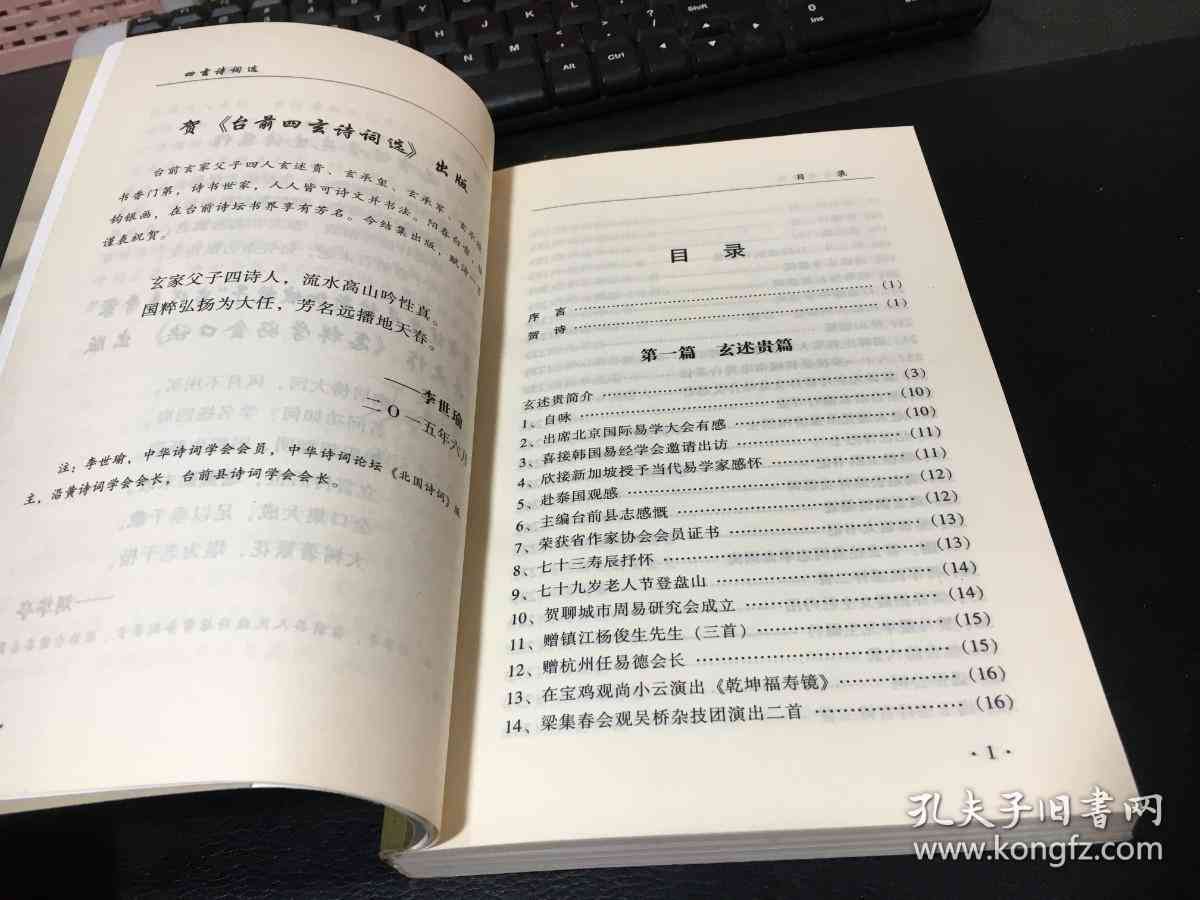 四玄诗词选
贺《台前四玄诗词选》出版
台前玄家父子四人玄述贵、玄承玺、玄承军、
书香门第，诗书世家，人人皆可诗文并书法。阳春白雪，
钩银画，在台前诗坛书界享有芳名。今结集出版，赋诗一
谨表祝贺。
玄家父子四诗人，流水高山吟性真。
国粹弘扬为大任，芳名远播地天春。
——李世瑜
二〇一五年六月
注：李世瑜，中华诗词学会会员，中华诗词论坛《北国诗词》版
主，沿黄诗词学会会长，台前县诗词学会会长。
目 录
目 录
序 言 (1)
贺 诗 (1)
第一篇 玄述贵篇
玄述贵简介 (3)
1、自咏 (10)
2、出席北京国际易学大会有感 (10)
3、喜接韩国易经学会邀请出访 (11)
4、欣接新加坡授予当代易学家感怀 (11)
5、赴泰国观感 (12)
6、主编台前县志感慨 (12)
7、荣获省作家协会会员证书 (13)
8、七十三寿辰抒怀 (13)
9、七十九岁老人节登盘山 (14)
10、贺聊城市周易研究会成立 (14)
11、赠镇江杨俊生先生（三首） (15)
12、赠杭州任易德会长 (15)
13、在宝鸡观尚小云演出《乾坤福寿镜》 (16)
14、梁集春会观吴桥杂技团演出二首 (16)
·1·
孔夫子旧書网
www.kongfz.com
N
M
Alt
Ctrl
Shift
0
Ins